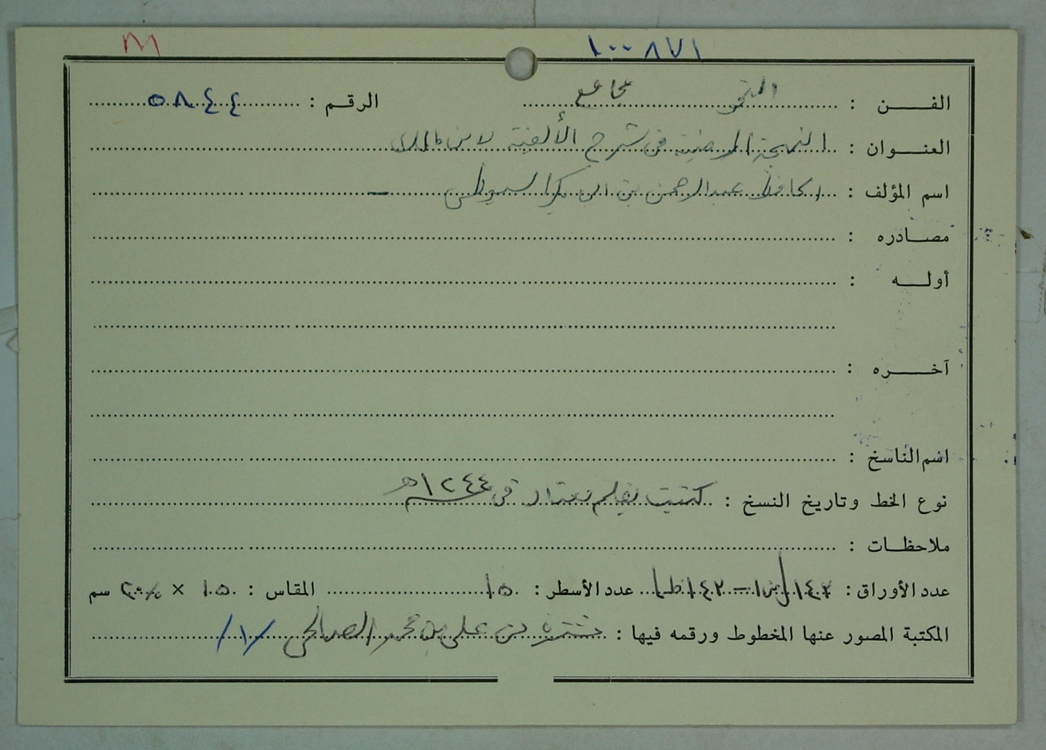 M ١٠٠٨٧١
الفـــن : النحو مجاميع الرقم : ٥٨٤٤
العنـــوان : البهجة المرضية في شرح الألفية لابن مالك
اسم المؤلف : الحافظ عبدالرحمن بن أبي بكر السيوطي
مصــادره :
أولــــه :
آخــــره :
اسم الناسخ :
نوع الخط وتاريخ النسخ : كتبت بقلم معتاد في ١٢٤٤هـ
ملاحظــات :
عدد الأوراق : ١٤٢ عدد الأسطر : ١٥ المقاس : ١٥ × سم
المكتبة المصور عنها المخطوط ورقمه فيها : بن علي بن محمد الصالحي /١/